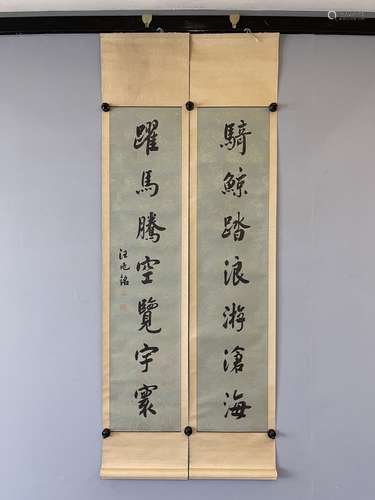 騎鯨踏浪游滄海
躍馬騰空覽宇寰
汪兆銘